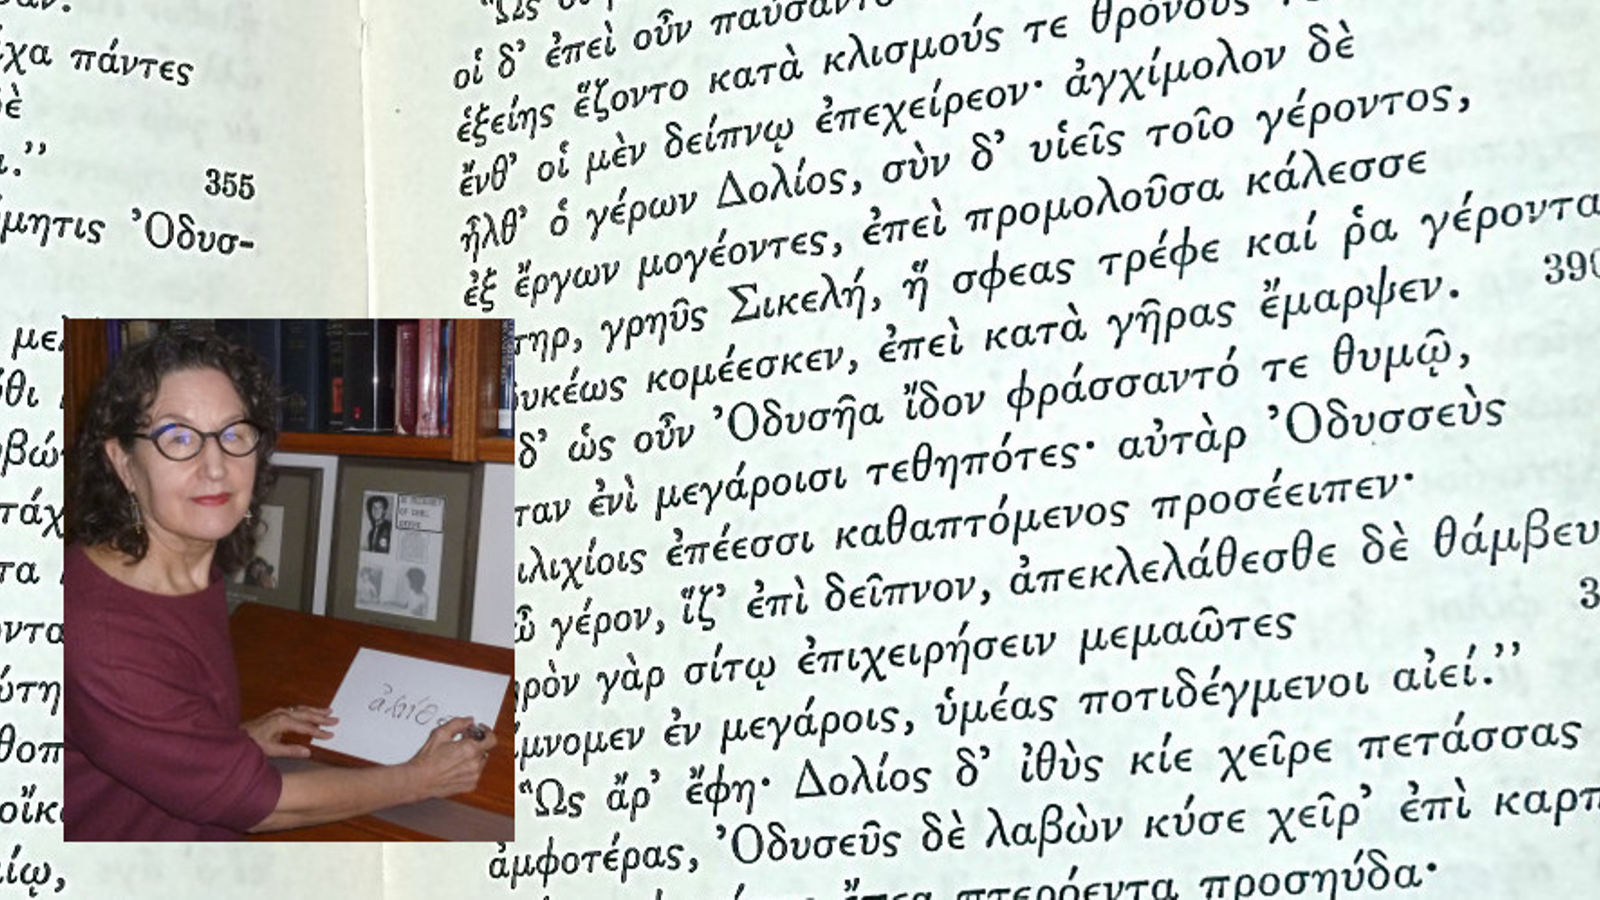 χα πάντες
355
μητις Ὀδυσ-
οἱ δ’ ἐπεὶ οὖν
ἑξείης ἕζοντο κατὰ κλισμούς τε θρόνους
ἔνθ’ οἱ μὲν δείπνῳ ἐπεχείρεον· ἀγχίμολον δὲ
ἦλθ’ ὁ γέρων Δολίος, σὺν δ’ υἱεῖς τοῖο γέροντος,
ἐξ ἔργων μογέοντες, ἐπεὶ προμολοῦσα κάλεσσε
τηρ, γρηῦς Σικελή, ἥ σφεας τρέφε καί ῥα γέροντα
υκέως κομέεσκεν, ἐπεὶ κατὰ γῆρας ἔμαρψεν. 390
δ’ ὡς οὖν Ὀδυσῆα ἴδον φράσσαντό τε θυμῷ,
ταν ἐνὶ μεγάροισι τεθηπότες· αὐτὰρ Ὀδυσσεὺς
ιλιχίοις ἐπέεσσι καθαπτόμενος προσέειπεν·
ὦ γέρον, ἵζ’ ἐπὶ δεῖπνον, ἀπεκλελάθεσθε δὲ θάμβευ
ρὸν γὰρ σίτῳ ἐπιχειρήσειν μεμαῶτες
μνομεν ἐν μεγάροις, ὑμέας ποτιδέγμενοι αἰεί.”
“Ὣς ἄρ’ ἔφη· Δολίος δ’ ἰθὺς κίε χεῖρε πετάσσας
ἀμφοτέρας, Ὀδυσεῦς δὲ λαβὼν κύσε χεῖρ’ ἐπὶ καρπ
ἔπεα πτερόεντα προσηύδα·